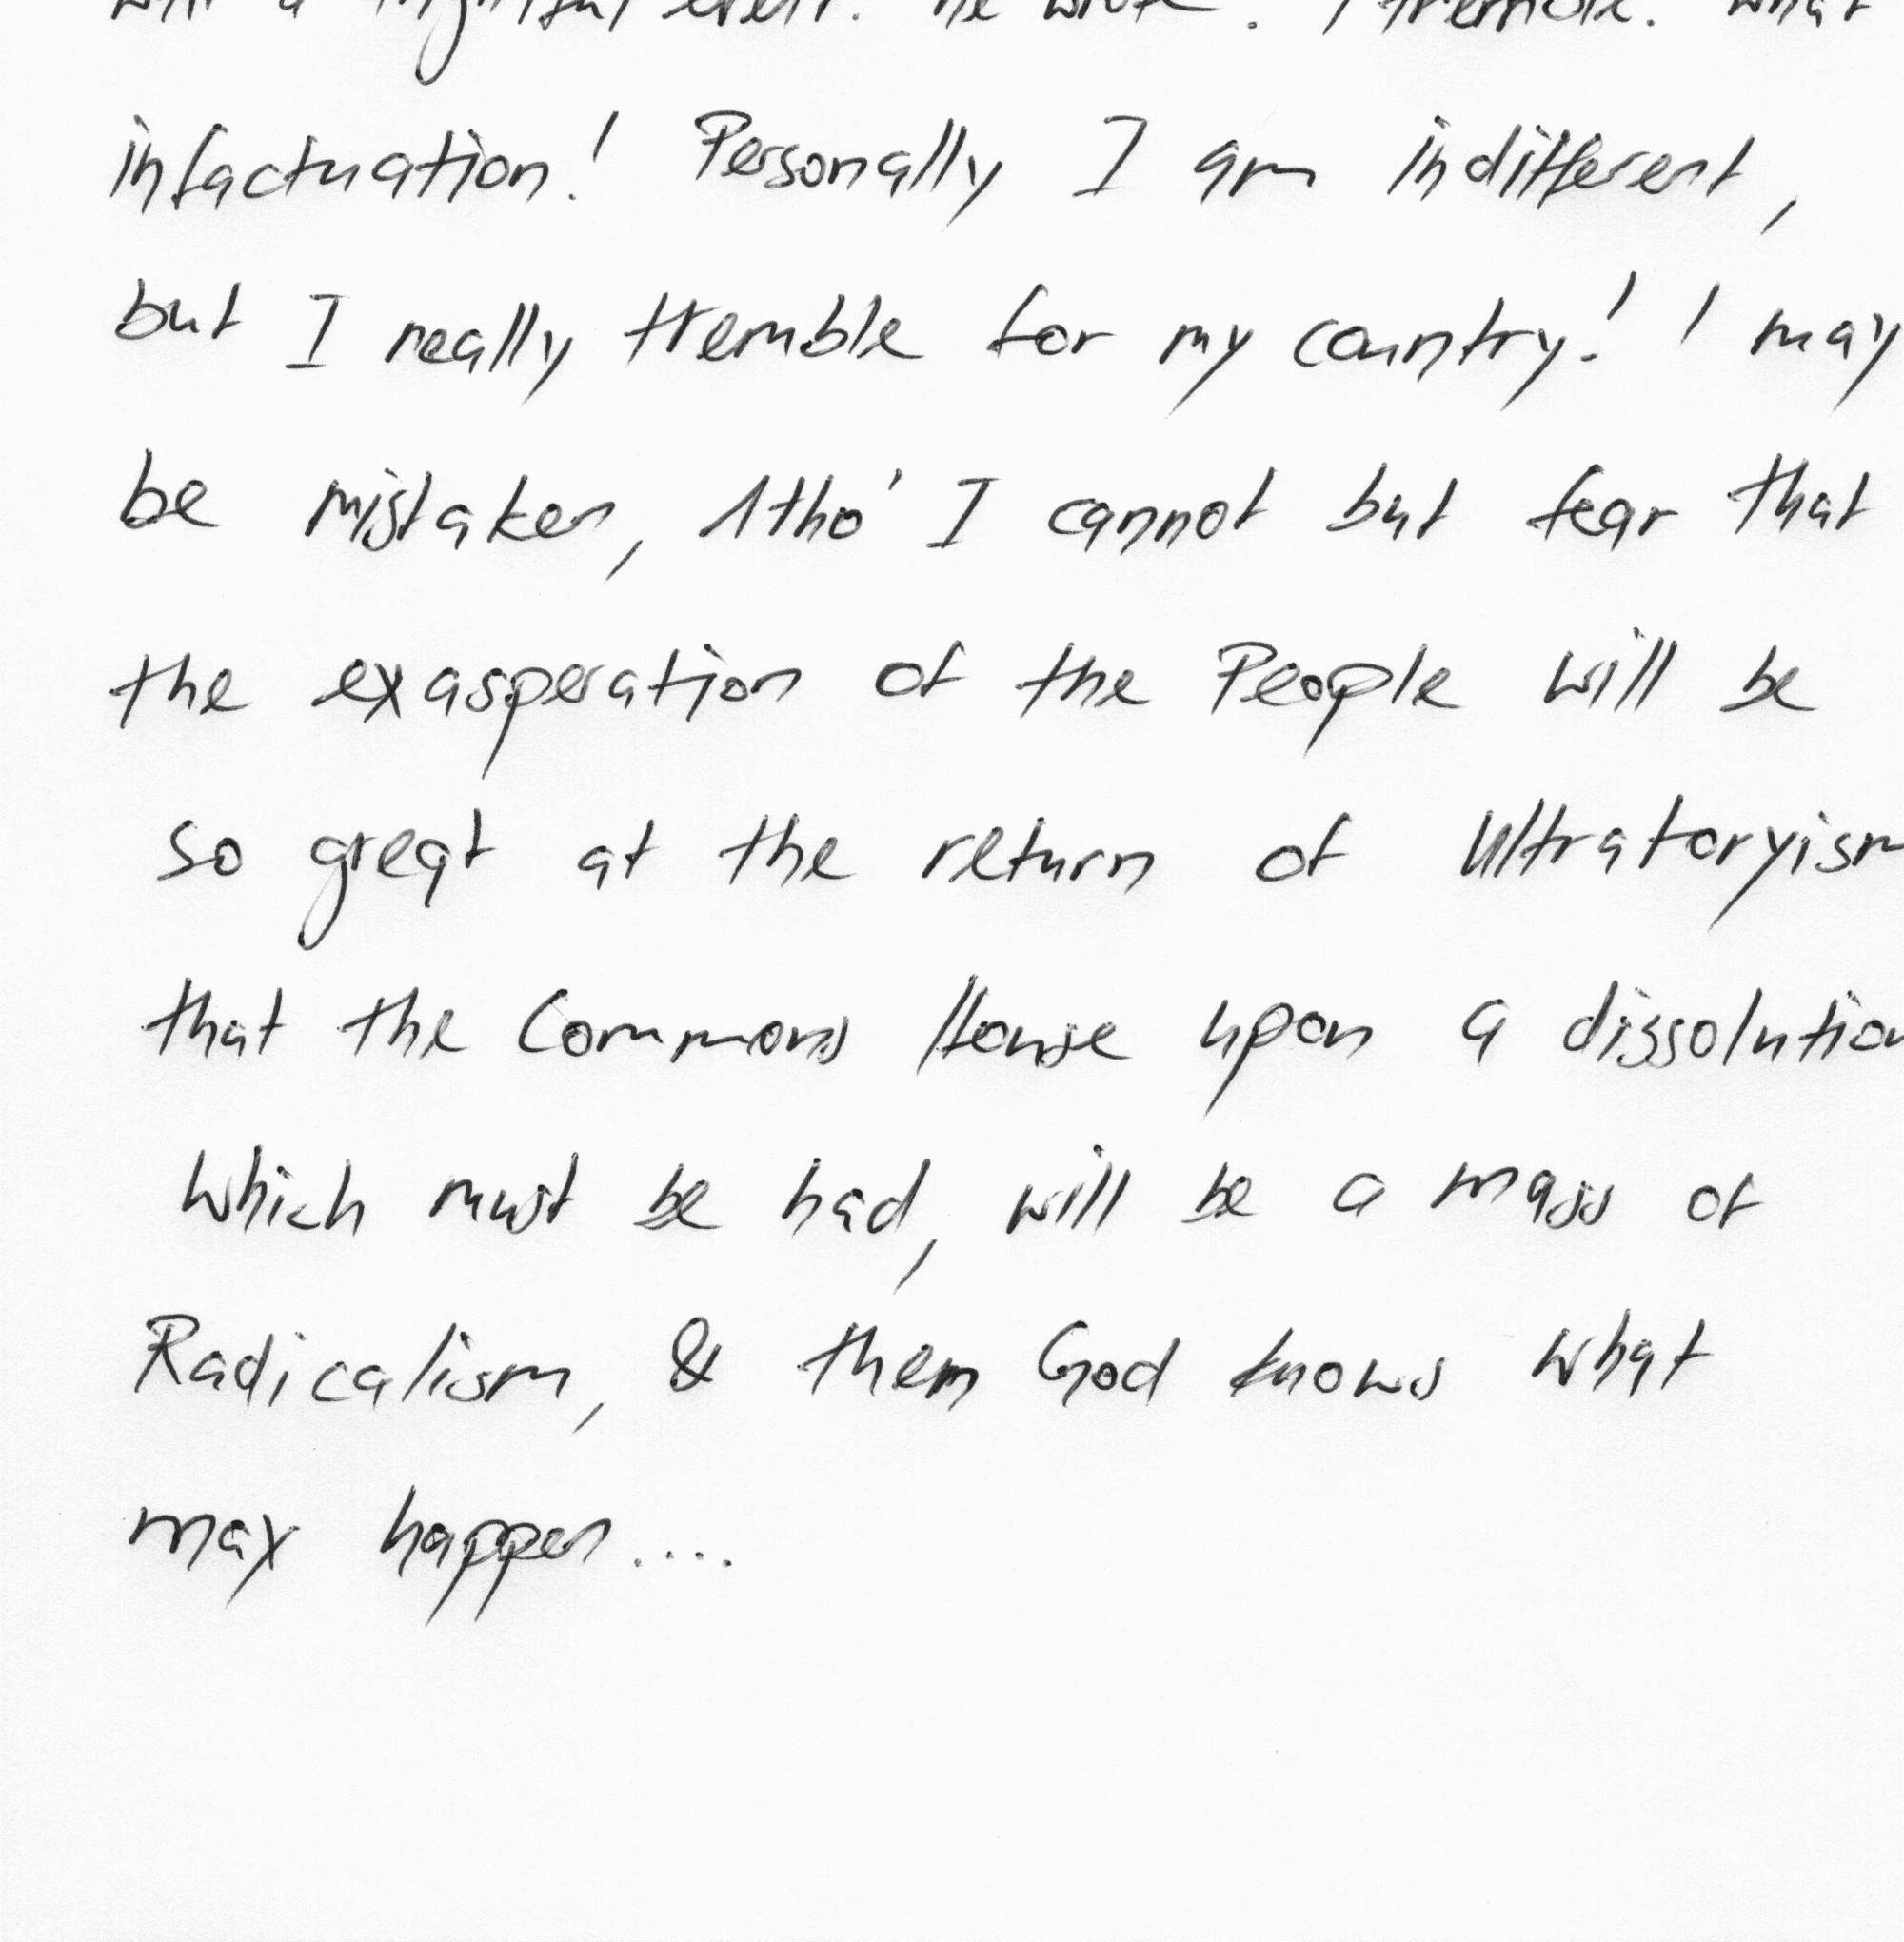 a frightful event. he wrote. I tremble. What
infactuation! Personally I am indifferent,
but I really tremble for my country! I may
be mistaken, Atho' I cannot but fear that
the exasperation of the People will be
so great at the return of Ultratoryism
that the Commons House upon a dissolution
which must be had, will be a mass of
Radicalism, & them God knows what
may happen....